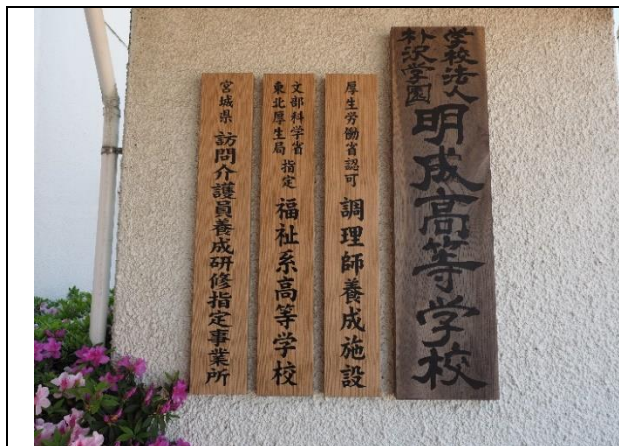 学校法人
朴沢学園
明成高等学校
厚生労働省認可
調理師養成施設
文部科学省
東北厚生局
指定
福祉系高等学校
宮城県
訪問介護員養成研修指定事業所